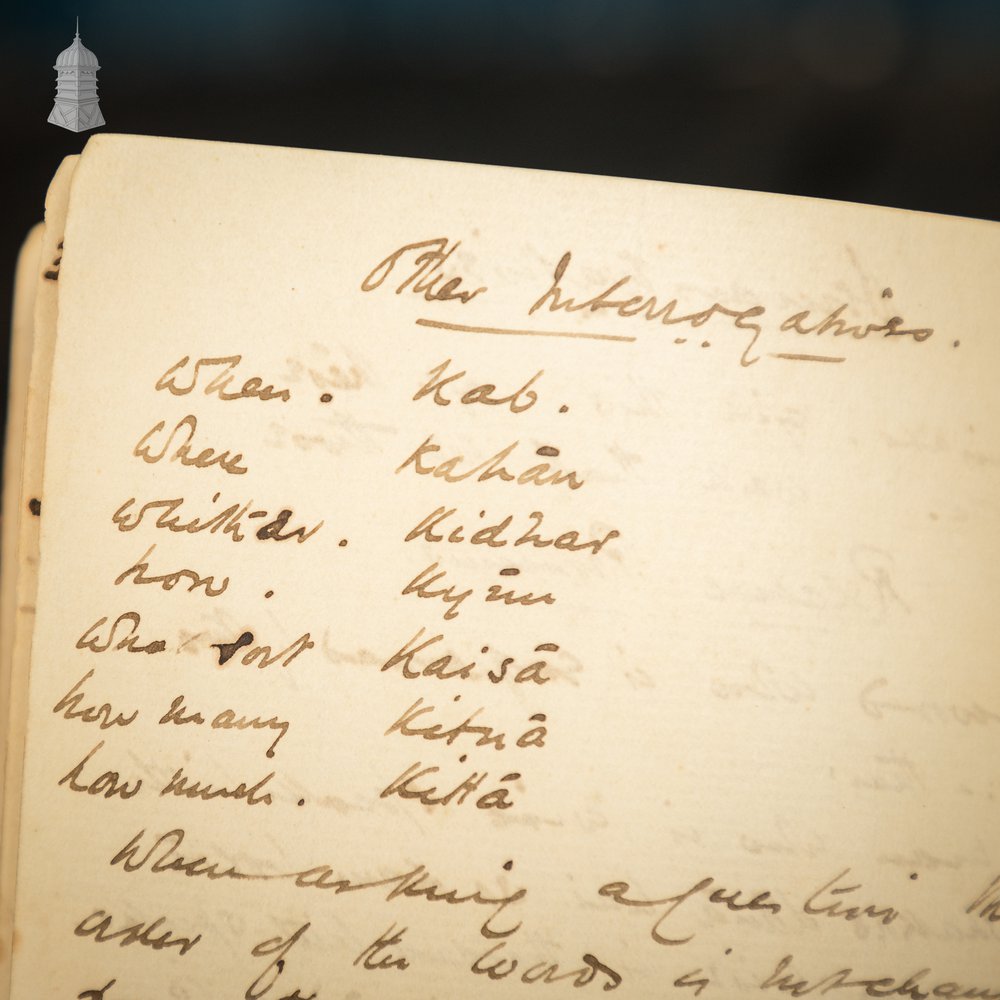 Other Interrogatives.
When. Kab.
Where Kahān
Whither. Kidhar
how. Kyūn
Wha sort Kaisā
how many Kitnā
how much. Kittā
When asking a question the
order of the words is not